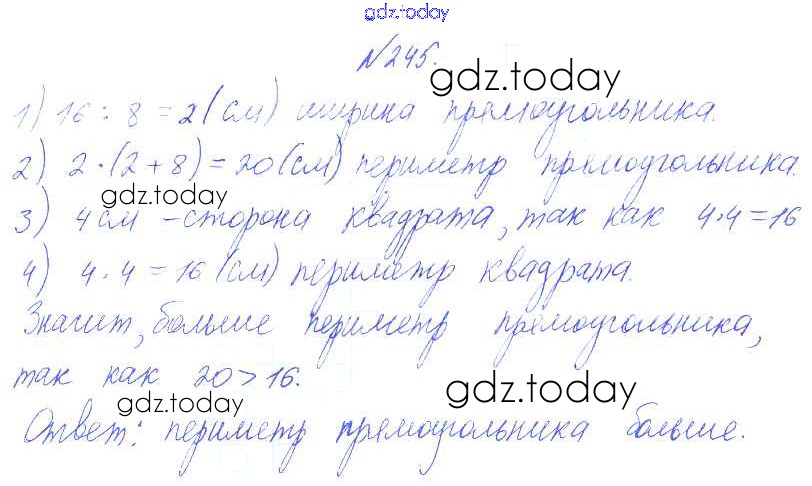 gdz.today
№245.
gdz.today
1) 16 : 8 = 2 (см) ширина прямоугольника.
2) 2 · (2 + 8) = 20 (см) периметр прямоугольника.
gdz.today
3) 4 см – сторона квадрата, так как 4 · 4 = 16
4) 4 · 4 = 16 (см) периметр квадрата.
Значит, больше периметр прямоугольника,
так как 20 > 16.
gdz.today gdz.today
Ответ: периметр прямоугольника больше.